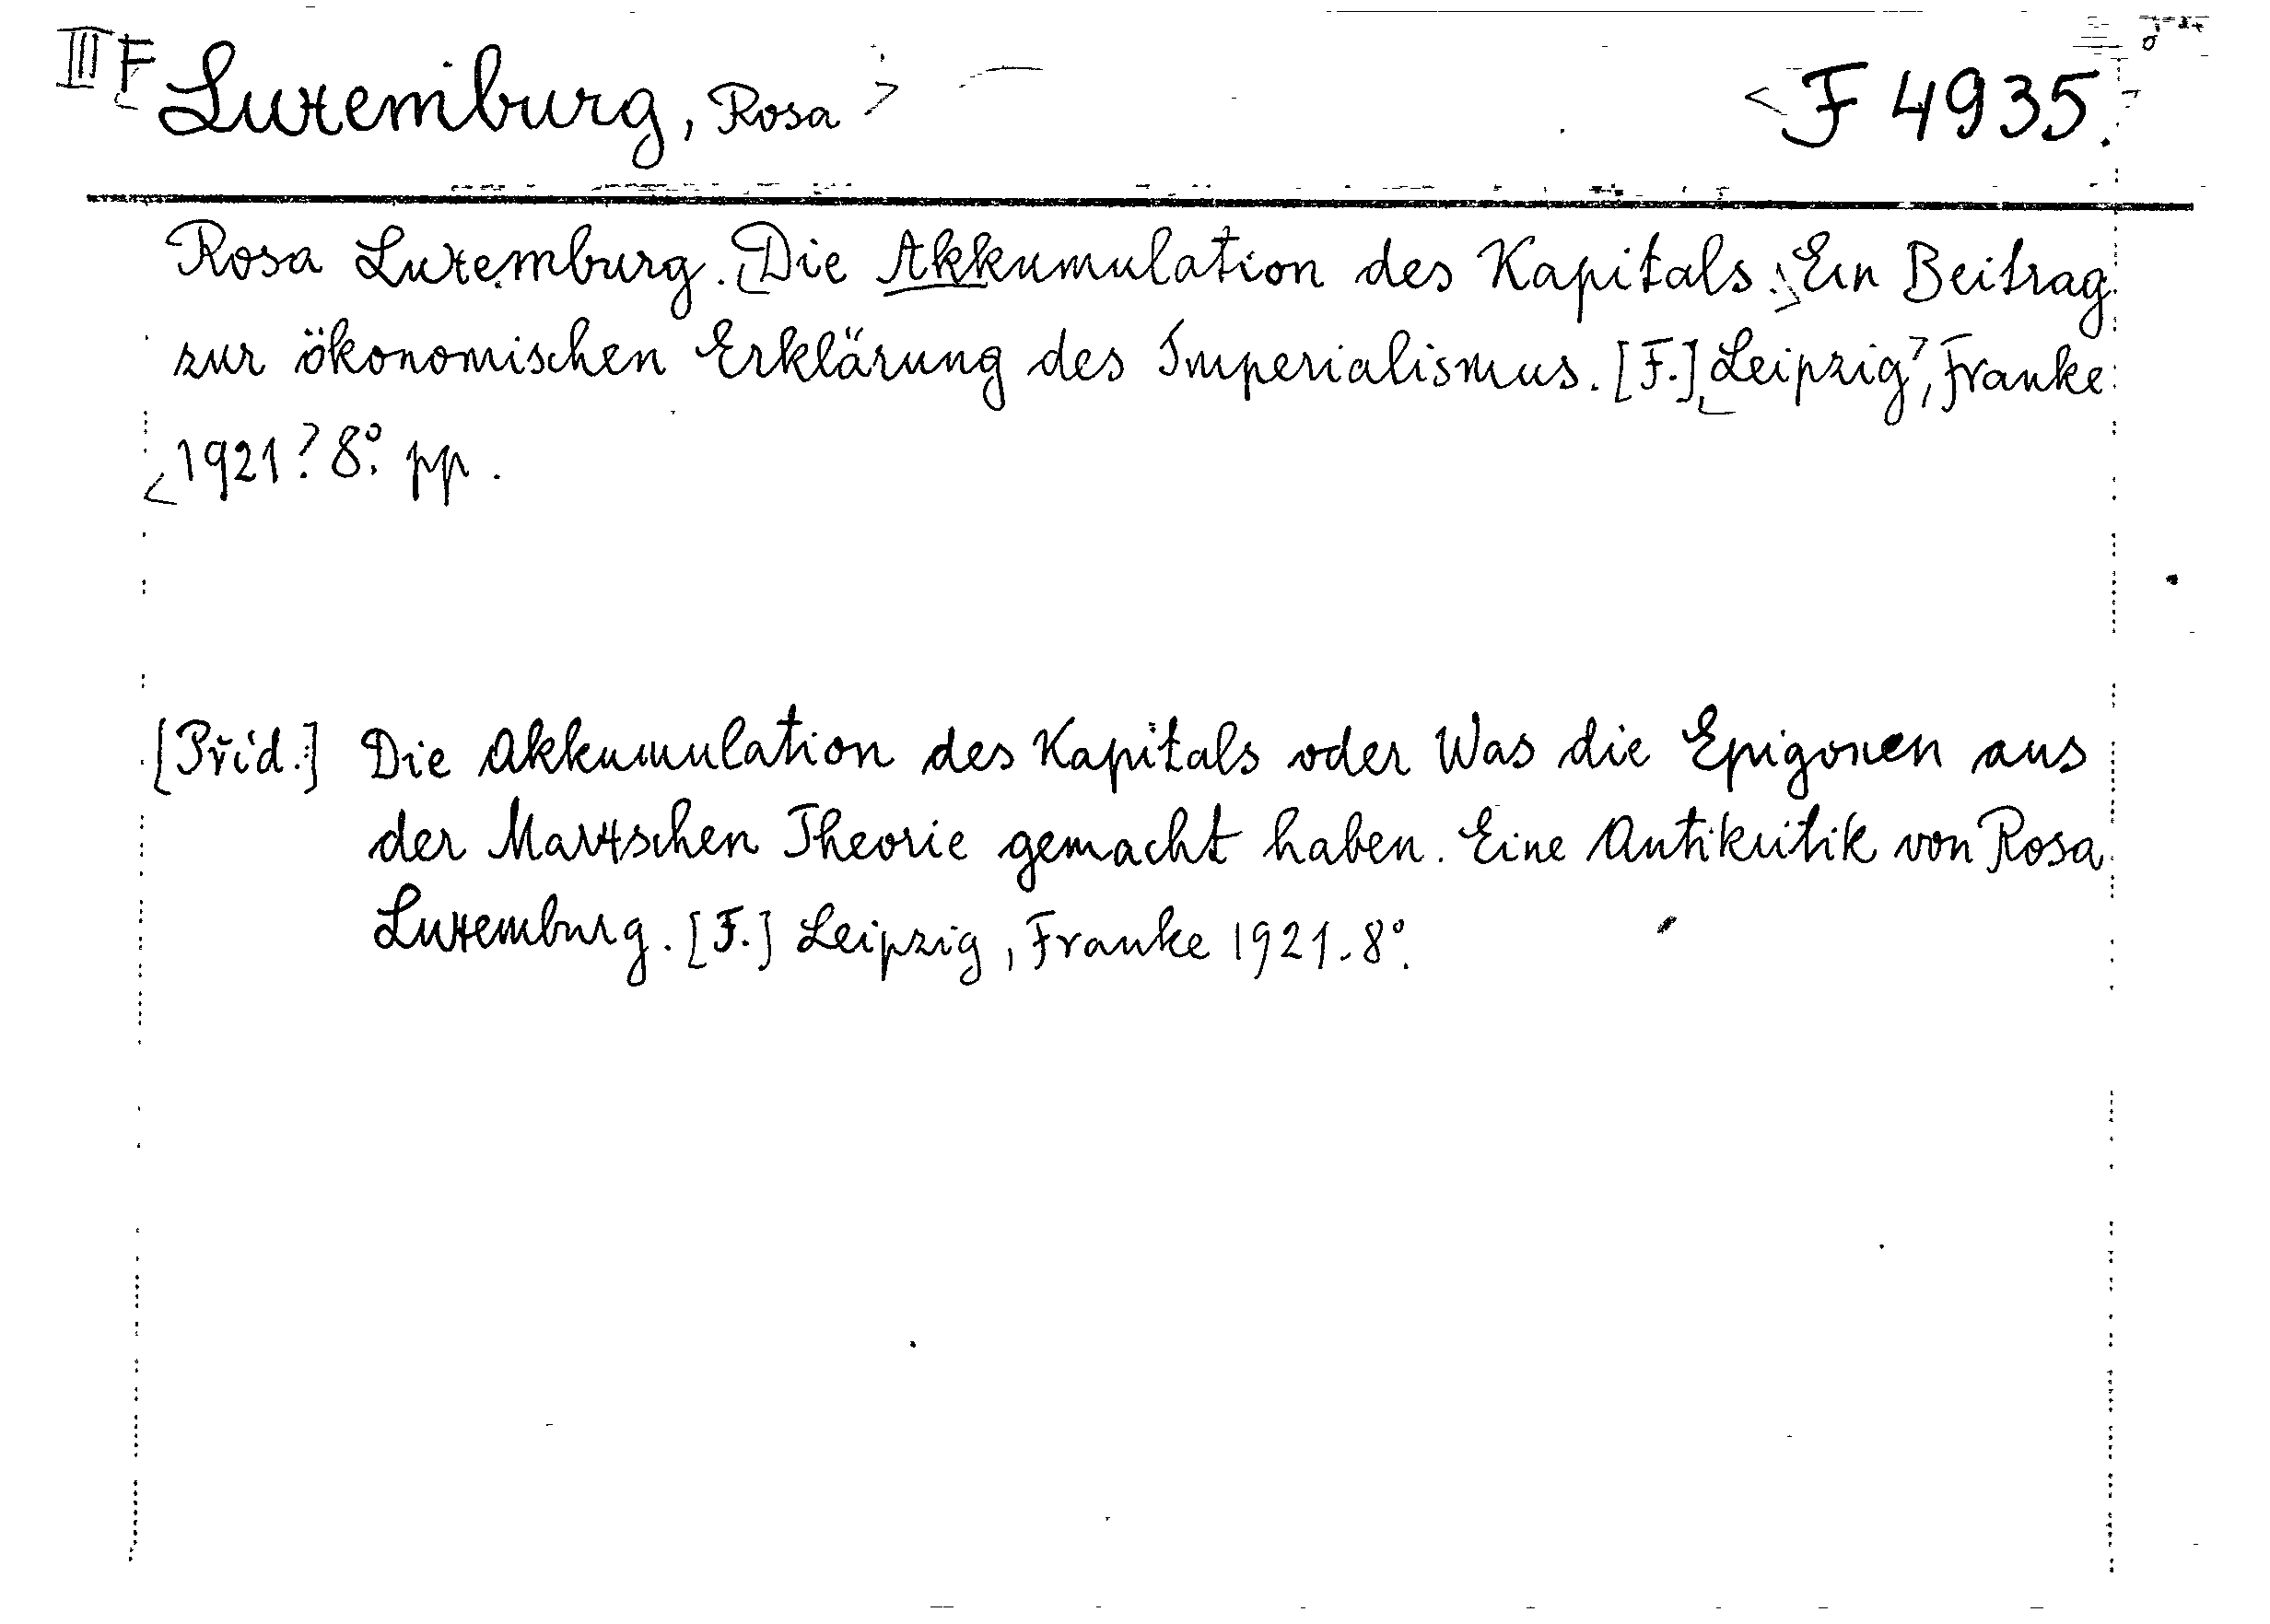 III F Luxemburg, Rosa F 4935.
Rosa Luxemburg. Die Akkumulation des Kapitals. Ein Beitrag
zur ökonomischen Erklärung des Imperialismus. [F.] Leipzig, Franke
1921. 8°. pp.
[Příd.] Die Akkumulation des Kapitals oder Was die Epigonen aus
der Marxschen Theorie gemacht haben. Eine Antikritik von Rosa
Luxemburg. [F.] Leipzig, Franke 1921. 8°.